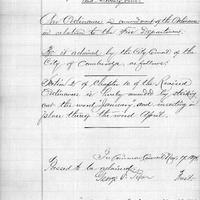 An Ordinance in amendment of the Ordinance
in relation to the Fire Department.
Be it ordained by the City Council of the
City of Cambridge, as follows:
Section 2 of Chapter 16 of the Revised
Ordinances is hereby amended by striking
out the word "January" and inserting in
place thereof the word April.
In Common Council
Passed to be ordained.
George
Prest.